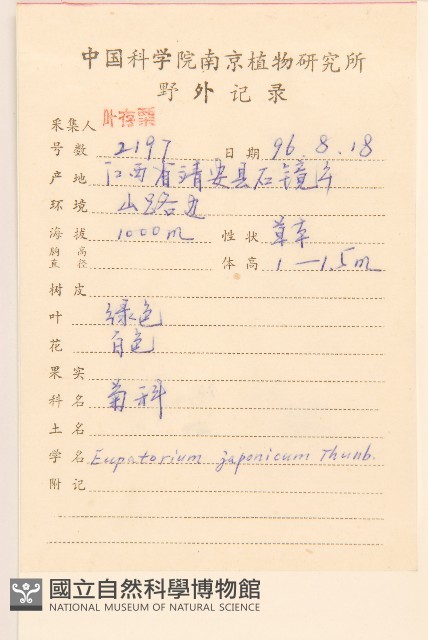 中国科学院南京植物研究所
野外记录
采集人 叶存粟
号数 2197 日期 96.8.18
产地 江西省靖安县石镜
环境 山路边
海拔 1000m 性状 草本
胸高直径 体高 1—1.5m
树皮
叶 绿色
花 白色
果实
科名 菊科
土名
学名 Eupatorium japonicum Thunb.
附记
國立自然科學博物館
NATIONAL MUSEUM OF NATURAL SCIENCE